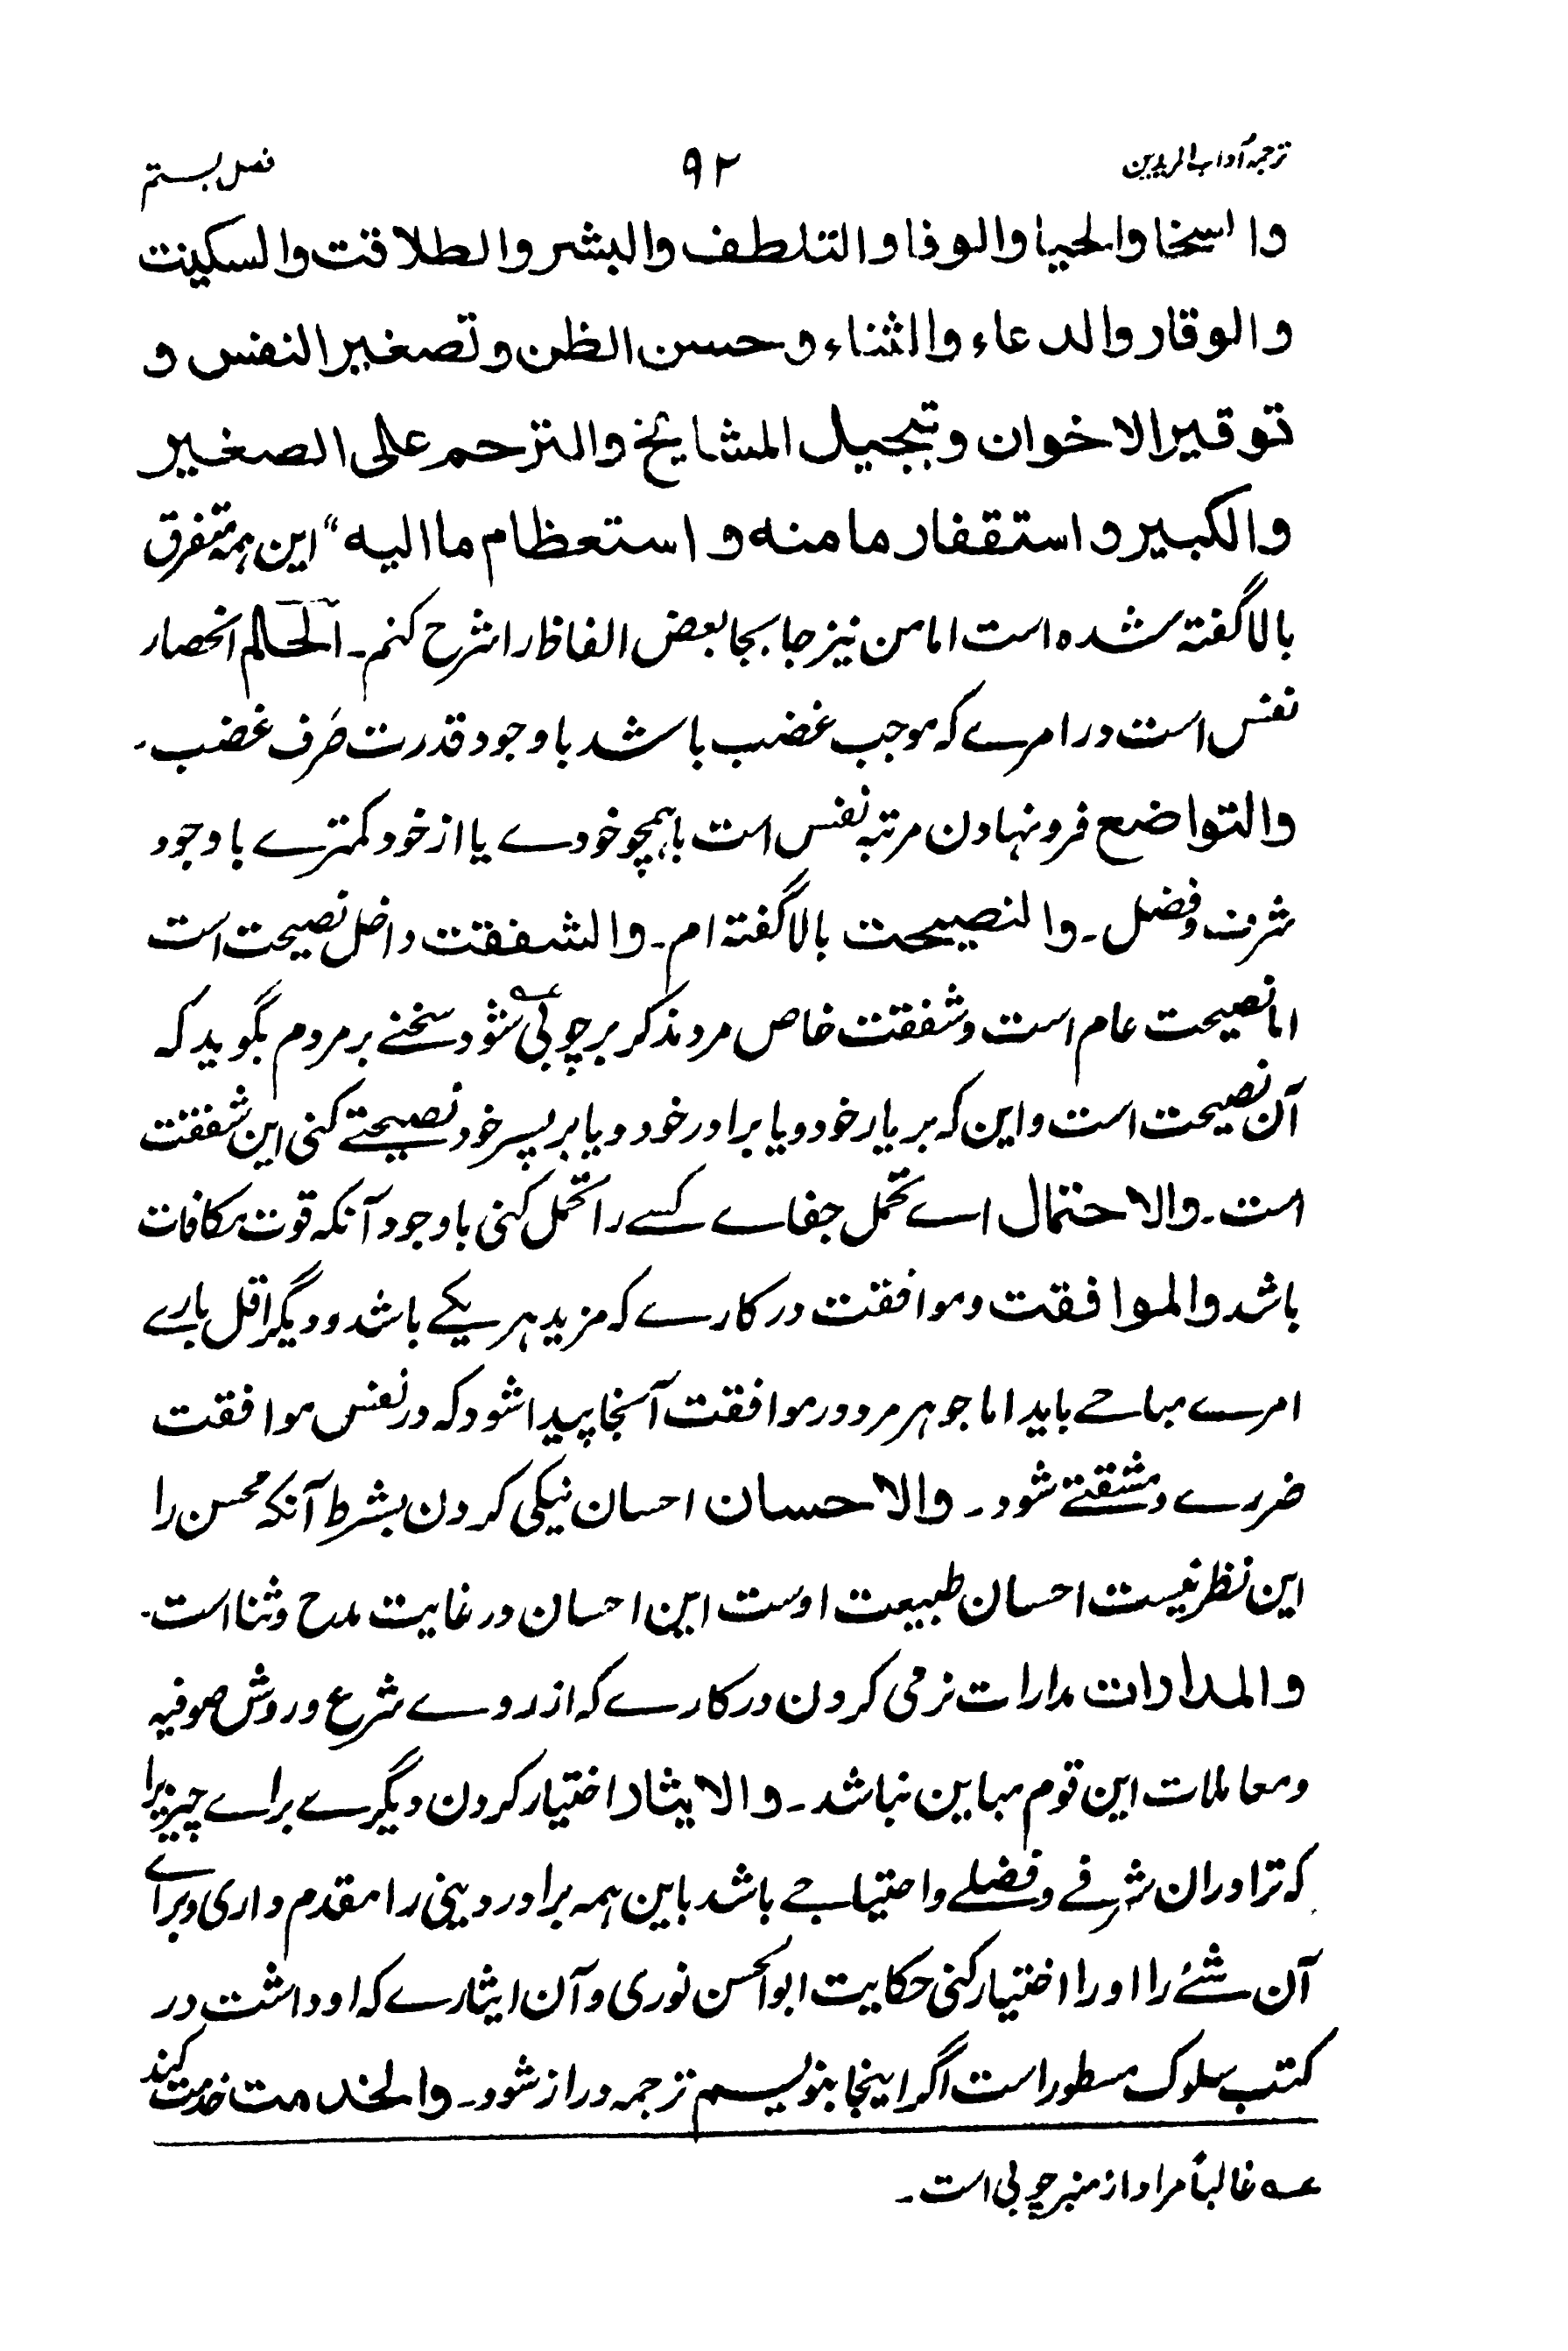 ترجمہ آداب المریدین ۹۲ فصل بستم
والسخا والحیا والوفا والتلطف والبشر والطلاقت والسکینت
والوقار والدعاء والثناء وحسن الظن وتصغیر النفس و
توقیر الاخوان وتبجیل المشایخ والترحم علی الصغیر
والکبیر واستقفار ما منه واستعظام ما الیه“ این ہمہ متفرق
بالا گفتہ شدہ است اما من نیز جا بجا بعض الفاظ را شرح کنم۔ الحلم انحصار
نفس است در امرے کہ موجب غضب باشد با وجود قدرت صَرف غضب۔
والتواضع فرو نہادن مرتبہ نفس است با ہمچو خودے یا از خود کمترے با وجود
شرف و فضل۔ والنصیحت بالا گفتہ ام۔ والشفقت داخل نصیحت است
اما نصیحت عام است و شفقت خاص مرد مذکر بر چوبی عہ شود سخنے بر مردم بگوید کہ
آن نصیحت است و این کہ بر یار خود و یا برادر خود و یا بر پسر خود نصیحتے کنی این شفقت
است۔ والاحتمال اے تحمل جفاے کسے را تحمل کنی با وجود آنکہ قوت مکافات
باشد والموافقت و موافقت در کارے کہ مزید ہر یکے باشد و دیگر اقل بارے
امرے مباحے باید اما جوہر مرد در موافقت آنجا پیدا شود کہ در نفس موافقت
ضررے و مشقتے شود۔ والاحسان احسان نیکی کردن بشرط آنکہ محسن را
این نظر نیست احسان طبیعت اوست این احسان در غایت مدح و ثنا است۔
والمدارات مدارات نرمی کردن در کارے کہ از روے شرع و روش صوفیہ
و معاملات این قوم مباین نباشد۔ والایثار اختیار کردن دیگرے براے چیزیرا
کہ ترا دران شرفے و فضلے و احتیاجے باشد باین ہمہ برادر دینی را مقدم داری و براے
آن شئے را او را اختیار کنی حکایت ابوالحسن نوری و آن ایثارے کہ او داشت در
کتب سلوک مسطور است اگر اینجا بنویسم ترجمہ دراز شود۔ والخدمت خدمت کنند
عہ غالباً مراد از منبر چوبی است۔